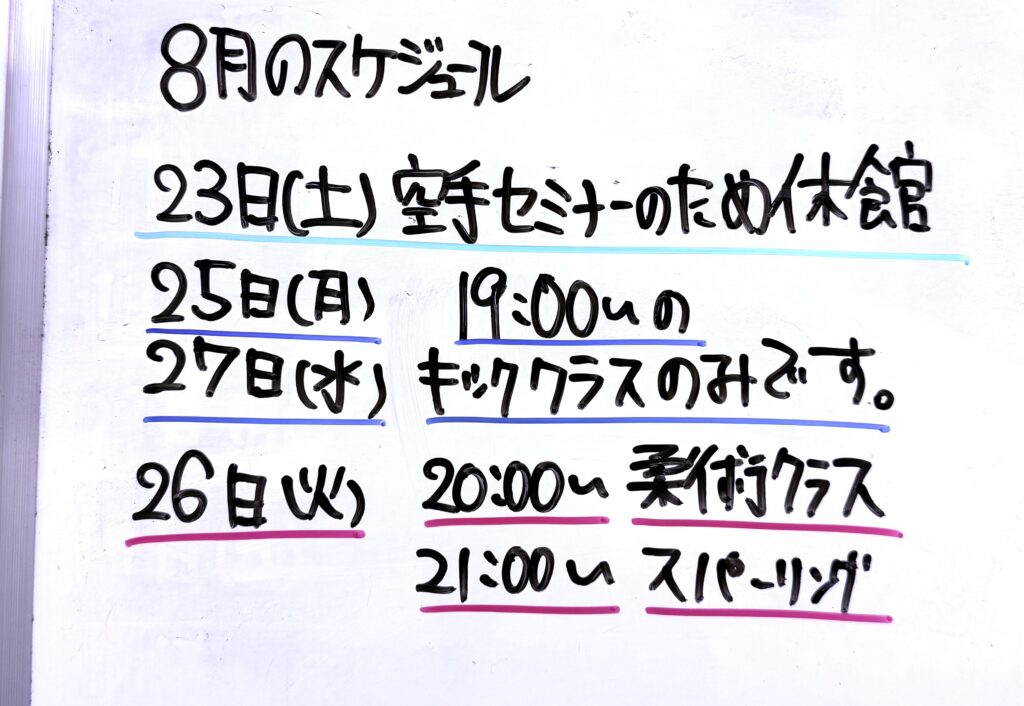 8月のスケジュール
23日(土) 空手セミナーのため休館
25日(月) 19:00〜の
27日(水) キッククラスのみです。
26日(火) 20:00〜 柔術クラス
21:00〜 スパーリング